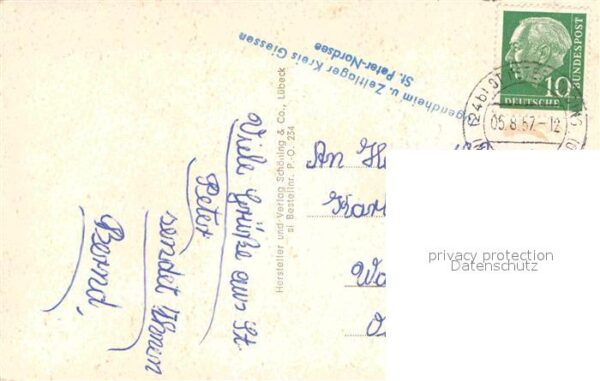 Jugendheim u. Zeltlager Kreis Giessen
St. Peter-Nordsee
Viele Grüße aus St.
Peter
sendet Ihnen
Bernd.
Hersteller und Verlag Schöning & Co., Lübeck
si Bestellnr. P.-O. 234
10
DEUTSCHE
BUNDESPOST
(24b) ST. PETER
05.8.57-12
An
privacy protection
Datenschutz